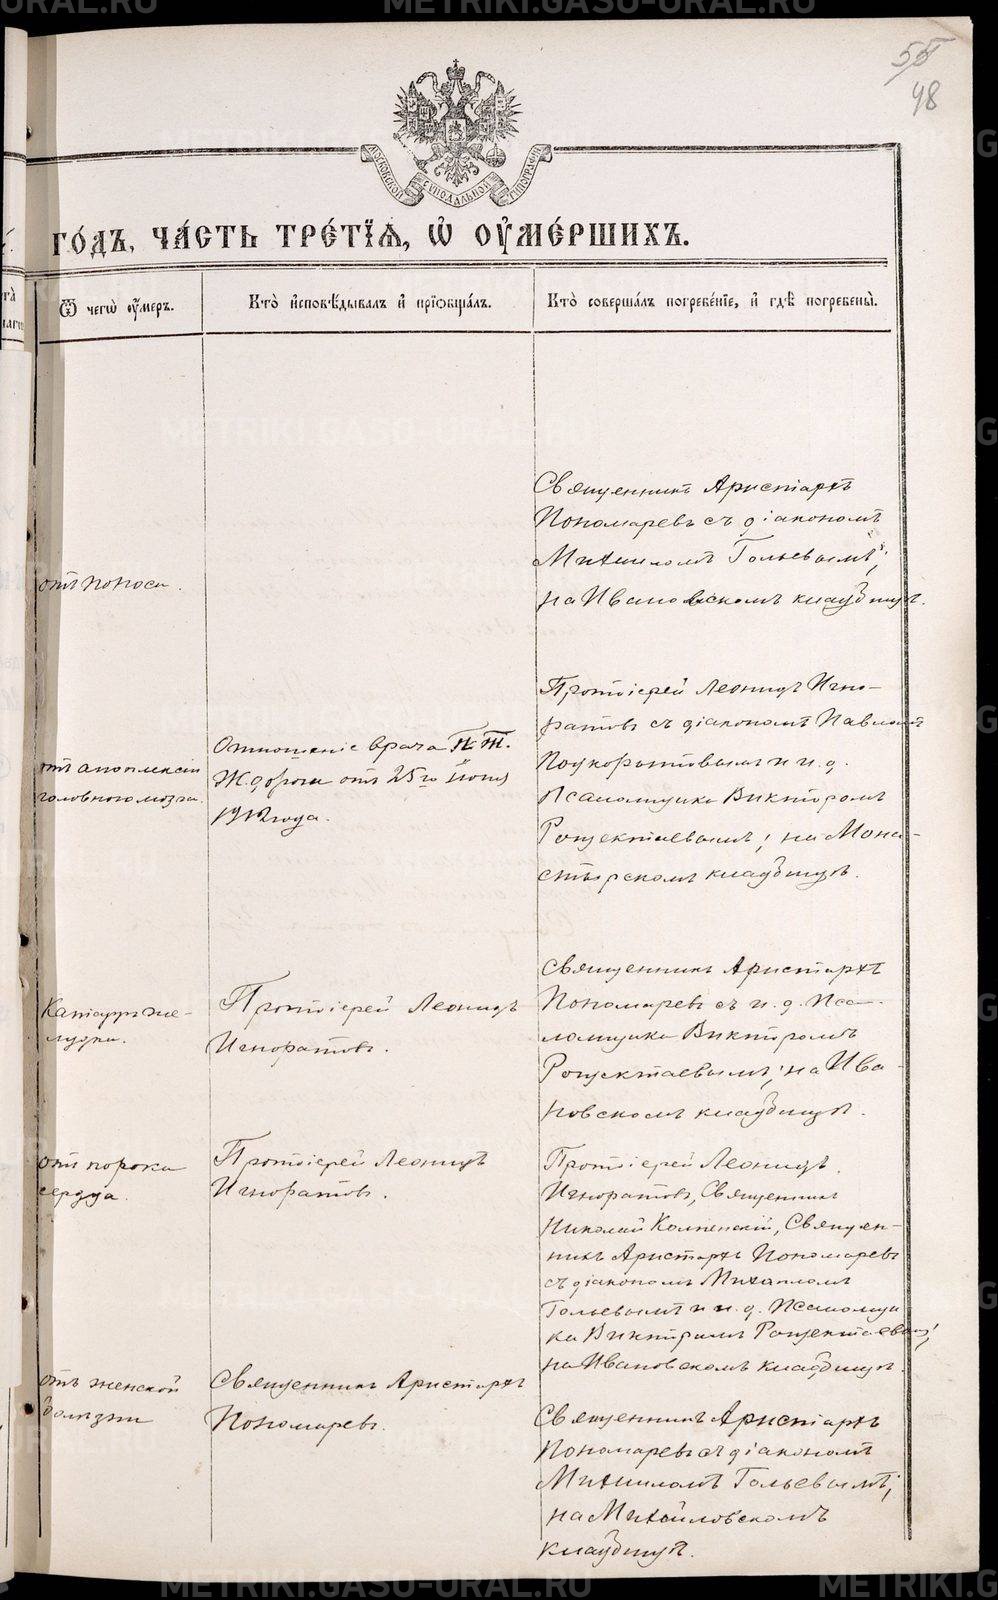 55
48
МОСКОВСКОЙ СѴНОДАЛЬНОЙ ТИПОГРАФІИ
го́дъ, ча́сть тре́тїѧ, ѡ҆ ᲂу҆ме́ршихъ.
Ѿ чегѡ̀ ᲂу҆́меръ.
Кто̀ и҆сповѣ́дывалъ и҆ прїѡбща́лъ.
Кто̀ соверша́лъ погребе́нїе, и҆ гдѣ̀ погребены̀.
отъ поноса.
Священникъ Аристархъ
Пономаревъ съ діакономъ
Михаиломъ Гольевымъ;
на Ивановскомъ кладбищѣ.
отъ апоплексіи
головного мозга.
Отношеніе врача П. Т.
Ж. дороги отъ 25го Іюня
1912 года.
Протоіерей Леонидъ Игно-
ратовъ съ діакономъ Павломъ
и и. д.
псаломщика Викторомъ
; на Мона-
стырскомъ кладбищѣ.
Катарръ же-
лудка.
Протоіерей Леонидъ
Игноратовъ.
Священникъ Аристархъ
Пономаревъ съ и. д. Пса-
ломщика Викторомъ
; на Ива-
новскомъ кладбищѣ.
отъ порока
сердца.
Протоіерей Леонидъ
Игноратовъ.
Протоіерей Леонидъ
Игноратовъ, Священникъ
Николай, Священ-
никъ Аристархъ Пономаревъ
съ діакономъ Михаиломъ
Гольевымъ и и. д. Псаломщи
ка Викторомъ
на Ивановскомъ кладбищѣ.
отъ женской
болѣзни
Священникъ Аристархъ
Пономаревъ.
Священникъ Аристархъ
Пономаревъ съ діакономъ
Михаиломъ Гольевымъ;
на Михайловскомъ
кладбищѣ.
METRIKI.GASO-URAL.RU